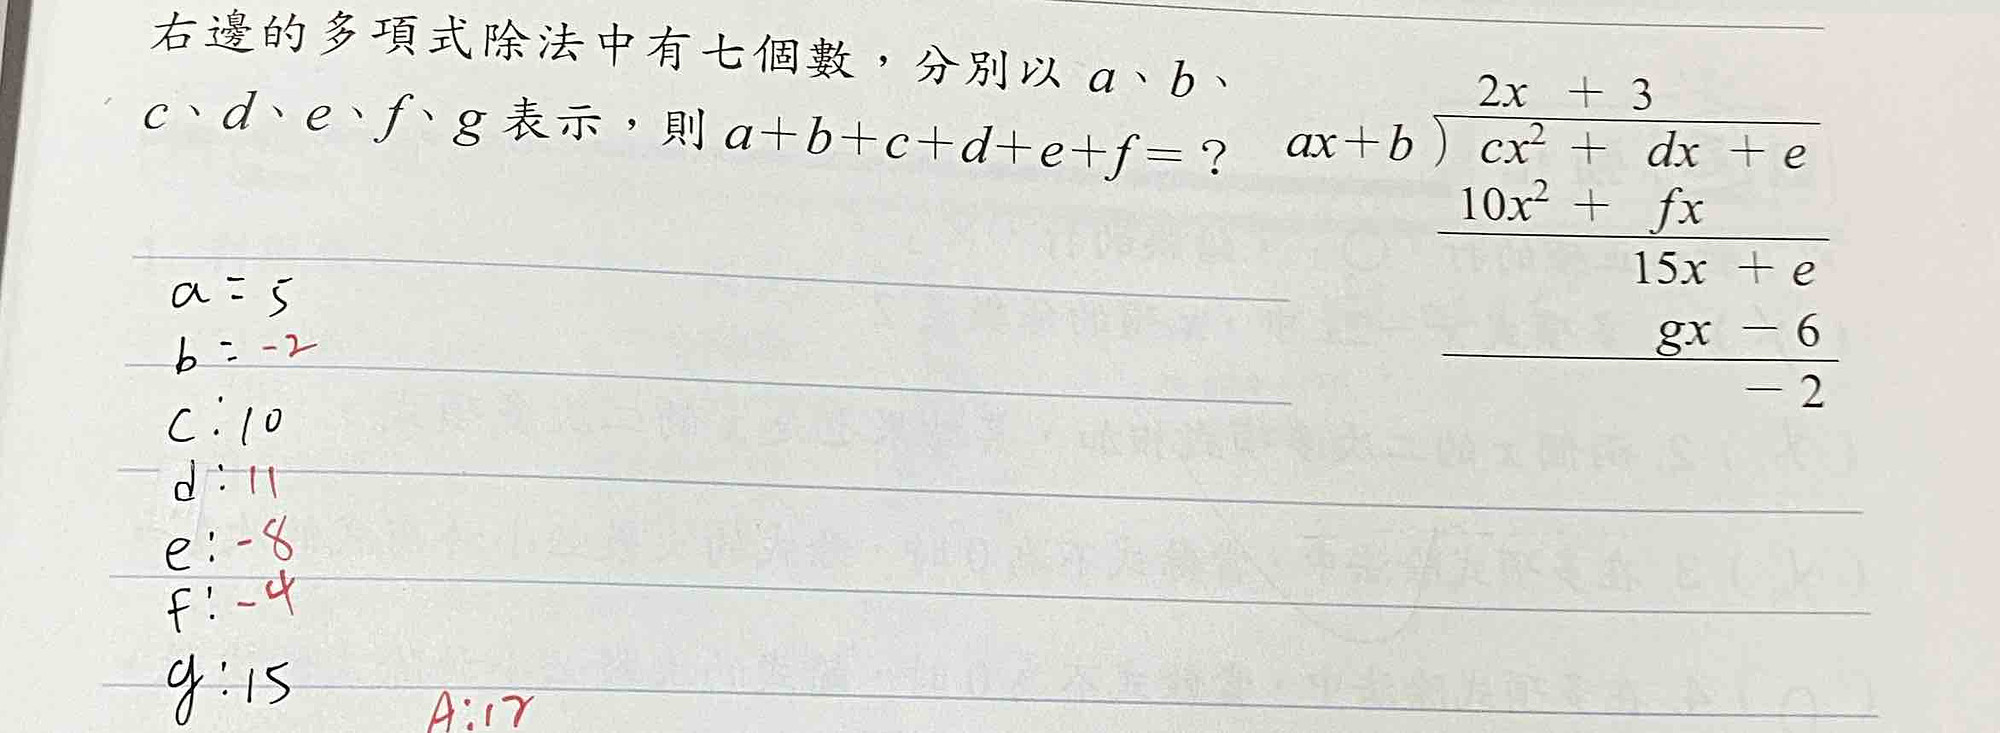 右邊的多項式除法中有七個數，分別以 a、b、
c、d、e、f、g 表示，則 a+b+c+d+e+f=？
2x + 3
ax+b ) cx² + dx + e
10x² + fx
15x + e
gx − 6
− 2
a = 5
b = -2
c : 10
d : 11
e : -8
f : -4
g : 15
A : 12